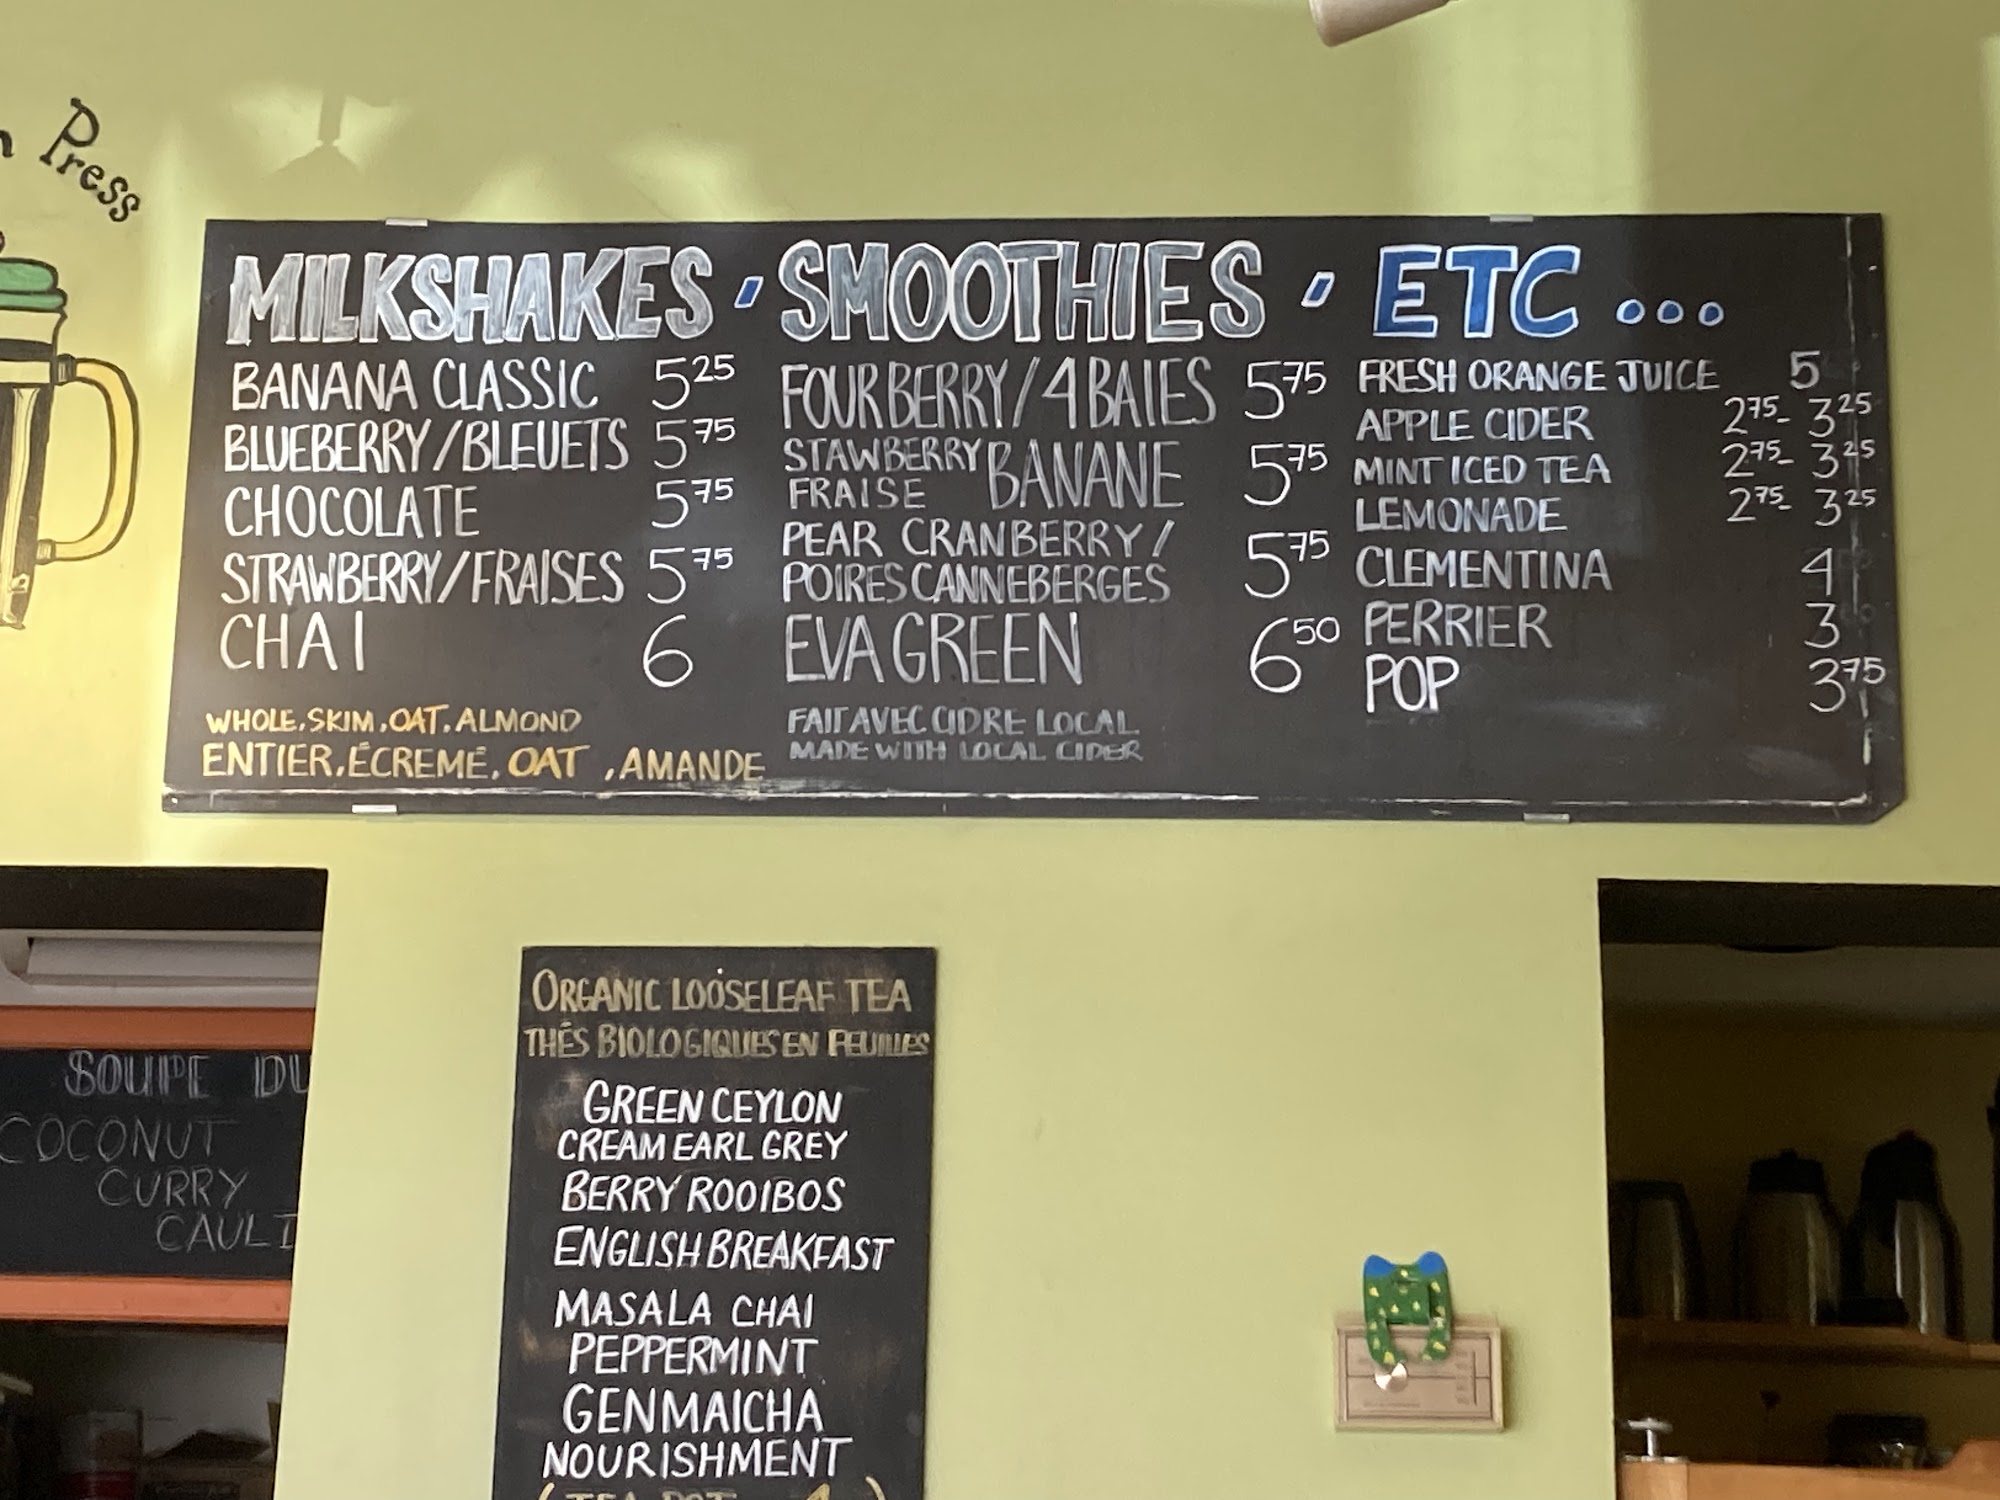 Press
MILKSHAKES · SMOOTHIES · ETC ...
BANANA CLASSIC 5 25
BLUEBERRY/BLEUETS 5 75
CHOCOLATE 5 75
STRAWBERRY/FRAISES 5 75
CHAI 6
WHOLE, SKIM, OAT, ALMOND
ENTIER, ÉCREMÉ, OAT, AMANDE
FOUR BERRY/4 BAIES 5 75
STAWBERRY
FRAISE BANANE 5 75
PEAR CRANBERRY/
POIRES CANNEBERGES 5 75
EVA GREEN 6 50
FAIT AVEC CIDRE LOCAL
MADE WITH LOCAL CIDER
FRESH ORANGE JUICE 5
APPLE CIDER 2 75 - 3 25
MINT ICED TEA 2 75 - 3 25
LEMONADE 2 75 - 3 25
CLEMENTINA 4
PERRIER 3
POP 3 75
SOUPE DU
COCONUT
CURRY
CAULI
ORGANIC LOOSELEAF TEA
THÉS BIOLOGIQUES EN FEUILLES
GREEN CEYLON
CREAM EARL GREY
BERRY ROOIBOS
ENGLISH BREAKFAST
MASALA CHAI
PEPPERMINT
GENMAICHA
NOURISHMENT